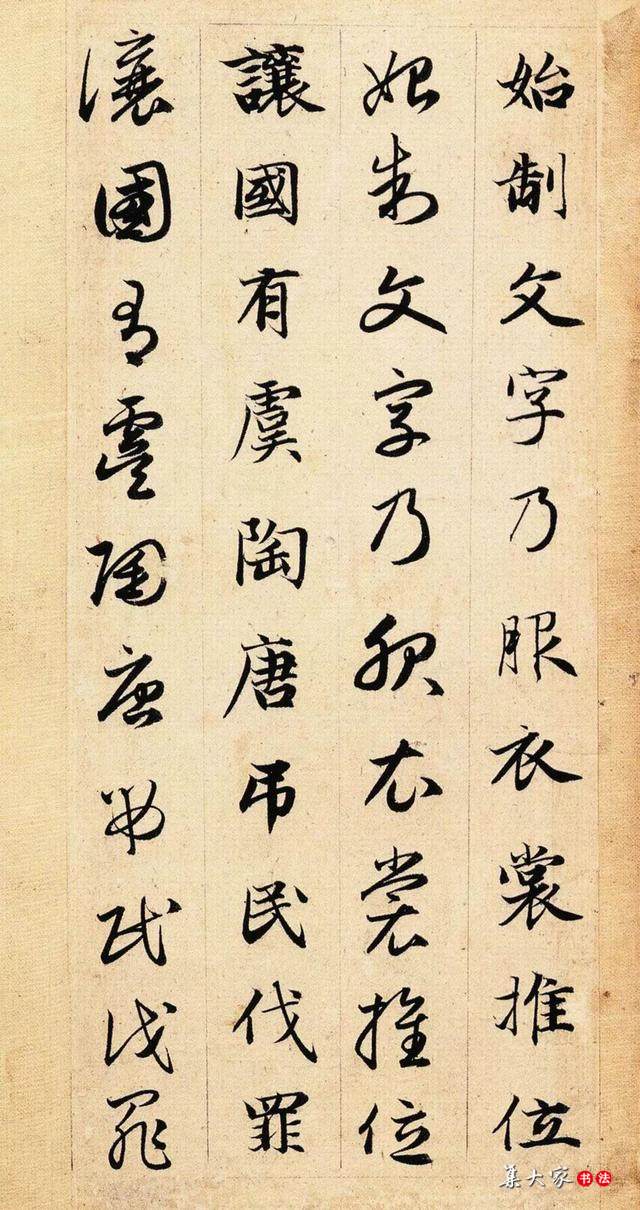 始制文字乃服衣裳推位
始制文字乃服衣裳推位
讓國有虞陶唐吊民伐罪
讓國有虞陶唐吊民伐罪
集大家书法